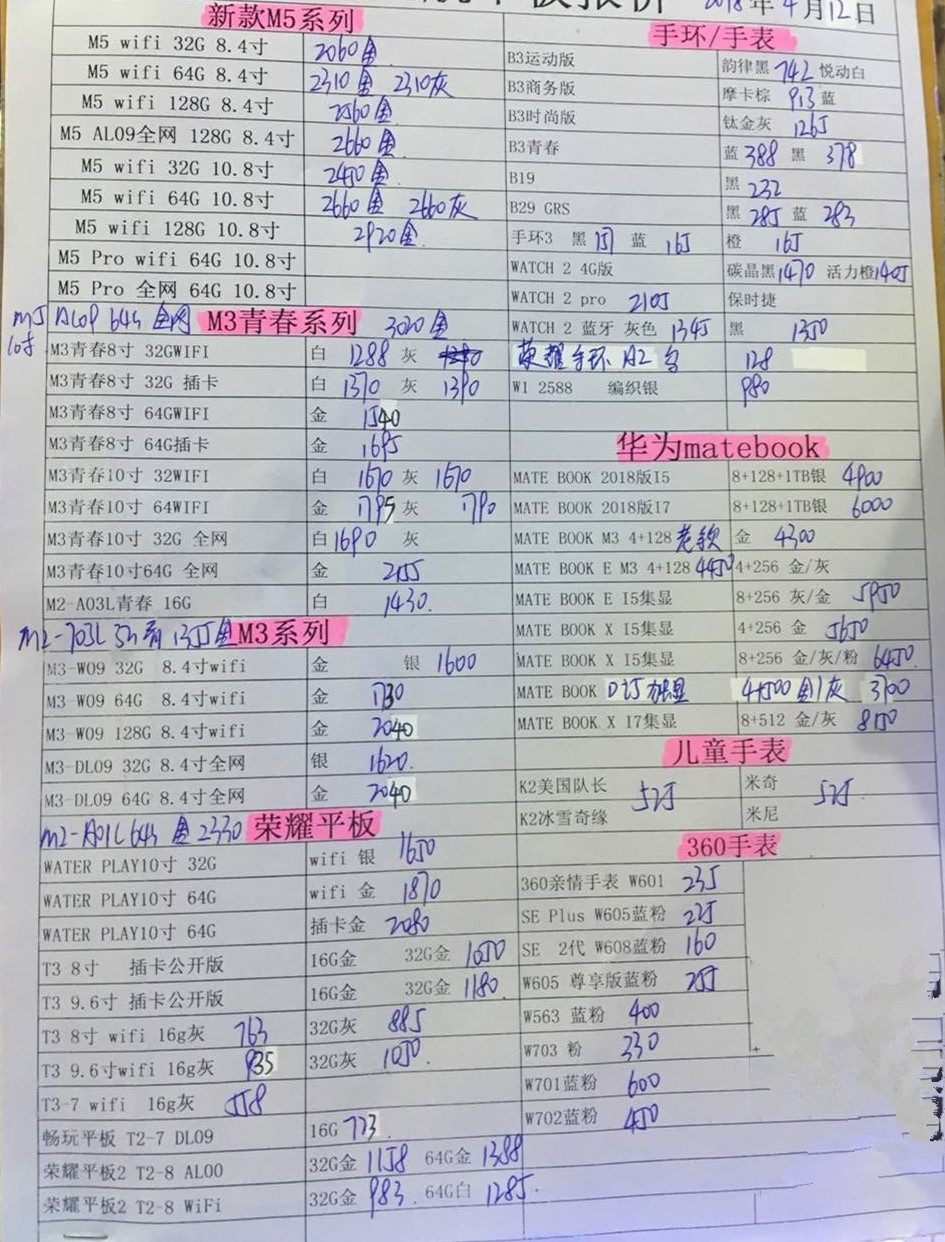 2018年4月12日
新款M5系列
M5 wifi 32G 8.4寸 2060金
M5 wifi 64G 8.4寸 2310金 2310灰
M5 wifi 128G 8.4寸 2560金
M5 AL09全网 128G 8.4寸 2660金
M5 wifi 32G 10.8寸 2450金
M5 wifi 64G 10.8寸 2660金 2660灰
M5 wifi 128G 10.8寸 2920金
M5 Pro wifi 64G 10.8寸
M5 Pro 全网 64G 10.8寸
M5 AL09 64G 全网 3020金
10寸
M3青春系列
M3青春8寸 32GWIFI 白 1288 灰
M3青春8寸 32G 插卡 白 1370 灰 1390
M3青春8寸 64GWIFI 金 1540
M3青春8寸 64G插卡 金 1695
M3青春10寸 32WIFI 白 1670 灰 1670
M3青春10寸 64WIFI 金 1795 灰 1790
M3青春10寸 32G 全网 白 1690 灰
M3青春10寸64G 全网 金 2155
M2-A03L青春 16G 白 1430.
M2-703L 5n 1355金
M3系列
M3-W09 32G 8.4寸wifi 金 银 1600
M3-W09 64G 8.4寸wifi 金 1730
M3-W09 128G 8.4寸wifi 金 2040
M3-DL09 32G 8.4寸全网 银 1620.
M3-DL09 64G 8.4寸全网 金 2040
M2-A01L 64G 金 2330
荣耀平板
WATER PLAY10寸 32G wifi 银 1650
WATER PLAY10寸 64G wifi 金 1870
WATER PLAY10寸 64G 插卡金 2080
T3 8寸 插卡公开版 16G金 32G金 1050
T3 9.6寸 插卡公开版 16G金 32G金 1180.
T3 8寸 wifi 16g灰 763 32G灰 885
T3 9.6寸wifi 16g灰 935 32G灰 1050.
T3-7 wifi 16g灰 558
畅玩平板 T2-7 DL09 16G 723
荣耀平板2 T2-8 AL00 32G金 1158 64G金 1388
荣耀平板2 T2-8 WiFi 32G金 983. 64G白 1285.
手环/手表
B3运动版 韵律黑 742 悦动白
B3商务版 摩卡棕 913 蓝
B3时尚版 钛金灰 1265
B3青春 蓝 388 黑 378
B19 黑 232
B29 GRS 黑 285 蓝 283
手环3 黑 151 蓝 165 橙 165
WATCH 2 4G版 碳晶黑1470 活力橙1405
WATCH 2 pro 2105 保时捷
WATCH 2 蓝牙 灰色 1345 黑 1350
荣耀手环 A2 128
W1 2588 编织银 980
华为matebook
MATE BOOK 2018版I5 8+128+1TB银 4900
MATE BOOK 2018版I7 8+128+1TB银 6000
MATE BOOK M3 4+128 老款 金 4300
MATE BOOK E M3 4+128 4450 4+256 金/灰
MATE BOOK E I5集显 8+256 灰/金 5950
MATE BOOK X I5集显 4+256 金 5650
MATE BOOK X I5集显 8+256 金/灰/粉 6450.
MATE BOOK D I5 4500 金/灰 3700
MATE BOOK X I7集显 8+512 金/灰 8150
儿童手表
K2美国队长 525 米奇 525
K2冰雪奇缘 米尼
360手表
360亲情手表 W601 235
SE Plus W605蓝粉 225
SE 2代 W608蓝粉 160
W605 尊享版蓝粉 255
W563 蓝粉 400
W703 粉 330
W701蓝粉 600
W702蓝粉 450